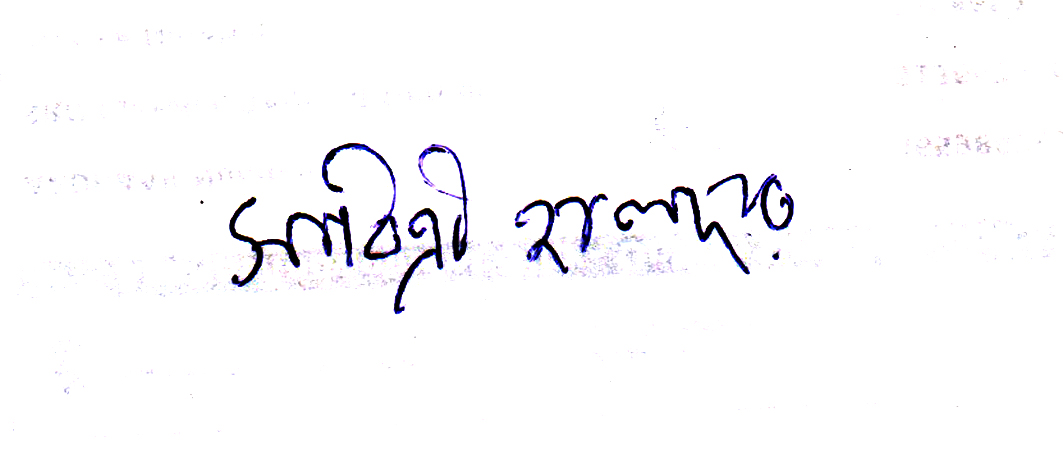 সাবিত্রী হালদার